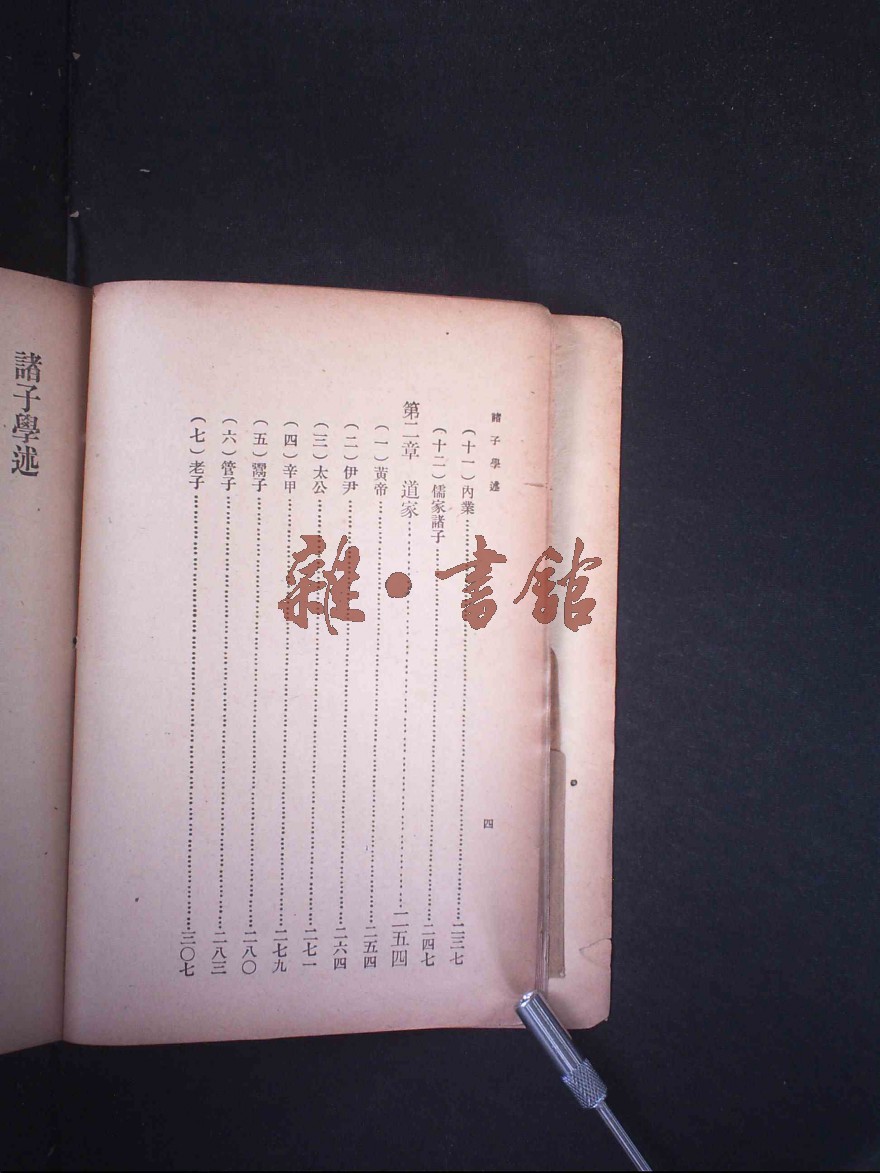 諸子學述
四
(十一)內業……二三七
(十二)儒家諸子……二四七
第二章　道家……二五四
(一)黃帝……二五四
(二)伊尹……二六四
(三)太公……二七一
(四)辛甲……二七九
(五)鬻子……二八〇
(六)管子……二八三
(七)老子……三〇七
諸子學述
雜·書館